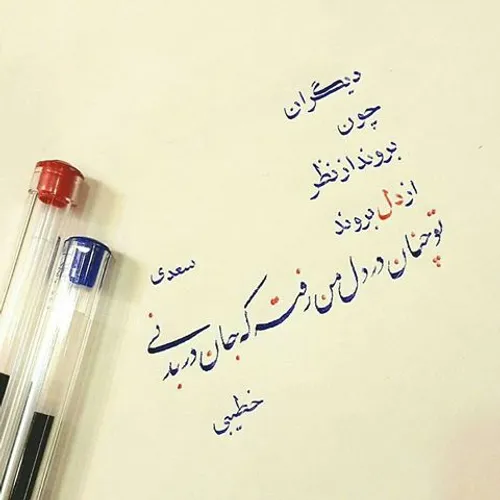 دیگران
چون
بروند از نظر
از دل بروند
تو چنان در دل من رفته که جان در بدنی
سعدی
خطیبی